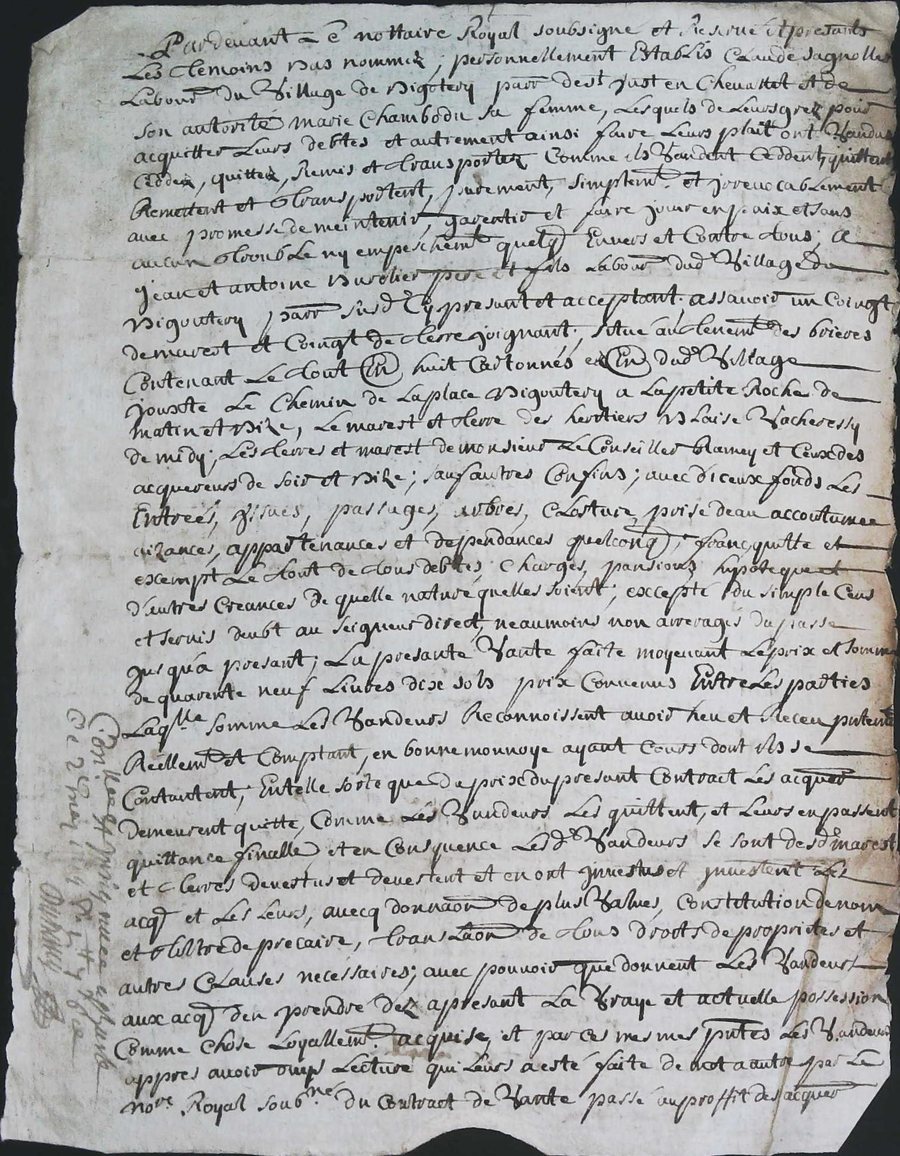 Pardevant Le nottaire Royal soubsigné et presants
Les tesmoins bas nommez, personnellement Establis Claude
Labour du Village de Nigotery parr dest Just en Chevallet et de
son autorité marie Chambodu sa femme, Lesquels de Leurs grez pour
acquitter Leurs debtes et autrement ainsi faire Leurs plait ont Vandus
Ceddez, quittez, Remis et transportez Comme ils Vandent Ceddent, quittent
Remettent et transportent, purement, simplemt et jrrevocablement
avec promesse de meintenir, garentir et faire jouir en paix et sans
aucun trouble ny empeschemt quelq Envers et Contre tous, A
jean et antoine pere et fils Labour dud Village de
Nigoutery parr susd Cy presant et acceptant assavoir un Coingt
de marest et Coingt de terre joignant, situé au tenemt des brieres
Contenant Le tout En huit Cartonnés dud Village
jouxte Le Chemin de La place Nigoutery a La petite Roche de
matin et bize, Le marest et terre des heretiers blaise Vacheressy
de midy, Les terres et marest de monsieur Le Conseiller et Ceux des
acquereurs de soir et bize; sauf autres Confins; avec diceux fonds Les
Entrées, issues, passages, arbres, Closture, prise deau accoutumee
aizances, appartenances et despendances quelconq, franc quitte et
excempt Le tout de tous debtes, Charges, pansions hipoteque et
d'autres Creances de quelle nature quelles soient, excepté du simple Cens
et servis deubt au seigneur direct, neaumoins non arrerages du passe
jusqua presant; La presante Vante faite moyenant Le prix et somme
de quarente neuf Livres dix sols prix Convenus Entre Les parties
Laqlle somme Les Vandeurs Reconnoissent avoir heu et Receu
Réellemt et Comptant, en bonne monnoye ayant Cours dont ils se
Contantent, En telle sorte que de prix du presant Contract Les acquer
demeurent quitte, Comme Les Vandeurs Les quittent, et Leurs en passent
quittance finalle, et en Consquence Lesd Vandeurs se sont desd marest
et terres devestus et devestent et en ont jnvestus et jnvestent Les
acq et Les Leurs, avecq donnaon de plus Values, Constitution de nom
et tiltre de precaire, translaon de tous droits de proprietes et
autres Clauses necessaires; avec pouvoir que donnent Les Vandeurs
aux acq den prendre dez apresant La Vraye et actuelle possession
Comme Chose Loyallemt acquise, et par ces mesmes pntes Les Vandeurs
appres avoir ouys Lecture qui Leurs a esté faite de mot a autre par Le
nore Royal soubne du Contract de Vante passé au proffit des acquer